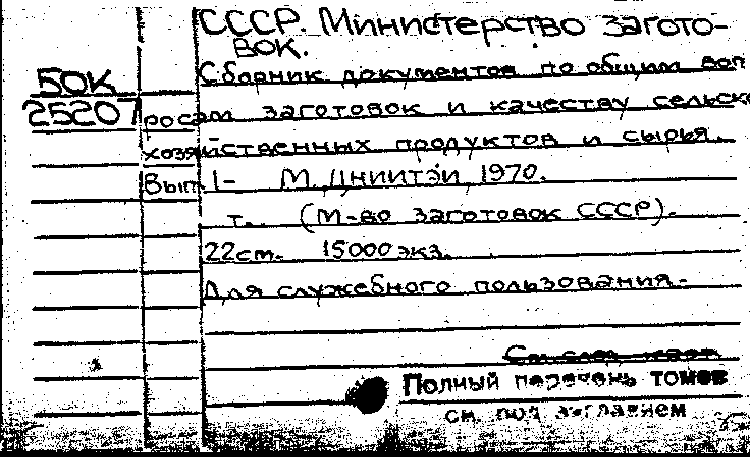 СССР. Министерство загото-
вок.
Сборник документов по общим воп
росам заготовок и качеству сельско
хозяйственных продуктов и сырья.
Вып. 1- М., ЦНИИТЭИ, 1970.
т.. (М-во заготовок СССР).
22см. 15000 экз.
Для служебного пользования.
БОК
25207
См. след. карт.
Полный перечень томов
см. под заглавием